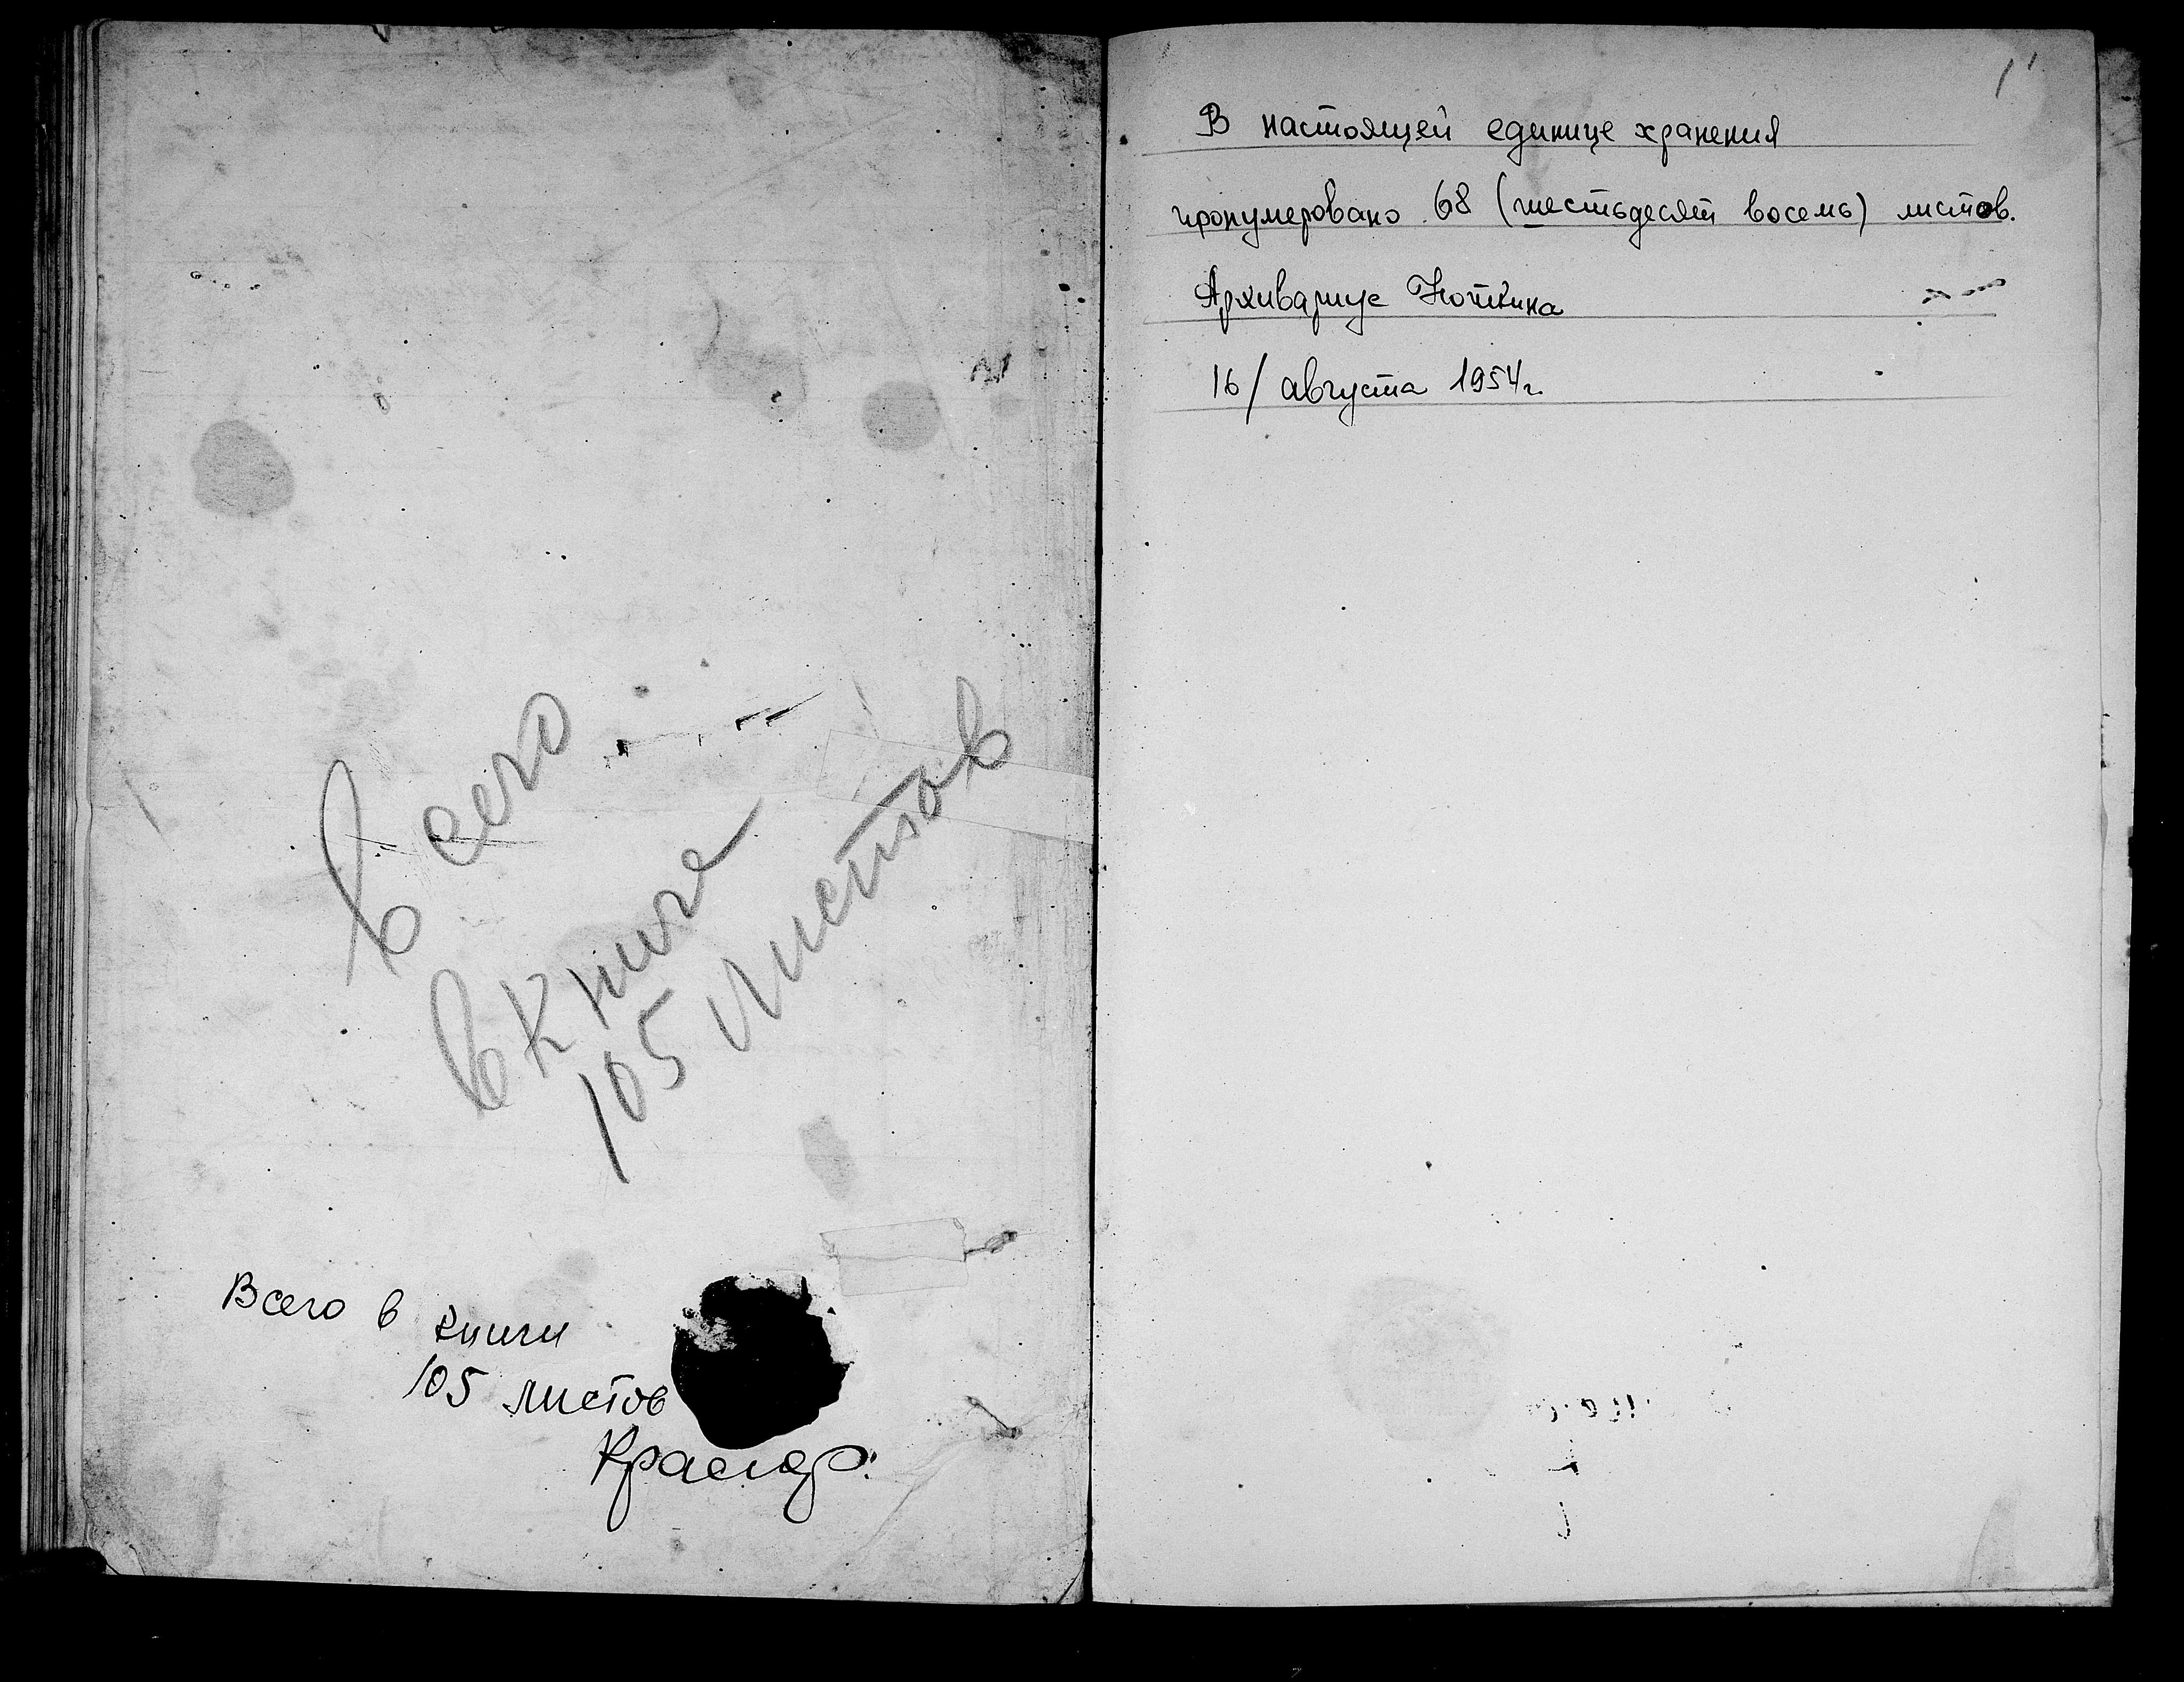 Всего
в книге
105 листов
Всего в книги
105 листов
В настоящей единице хранения
пронумеровано 68 (шестьдесят восемь) листов.
Архивариус
16/ августа 1954г.